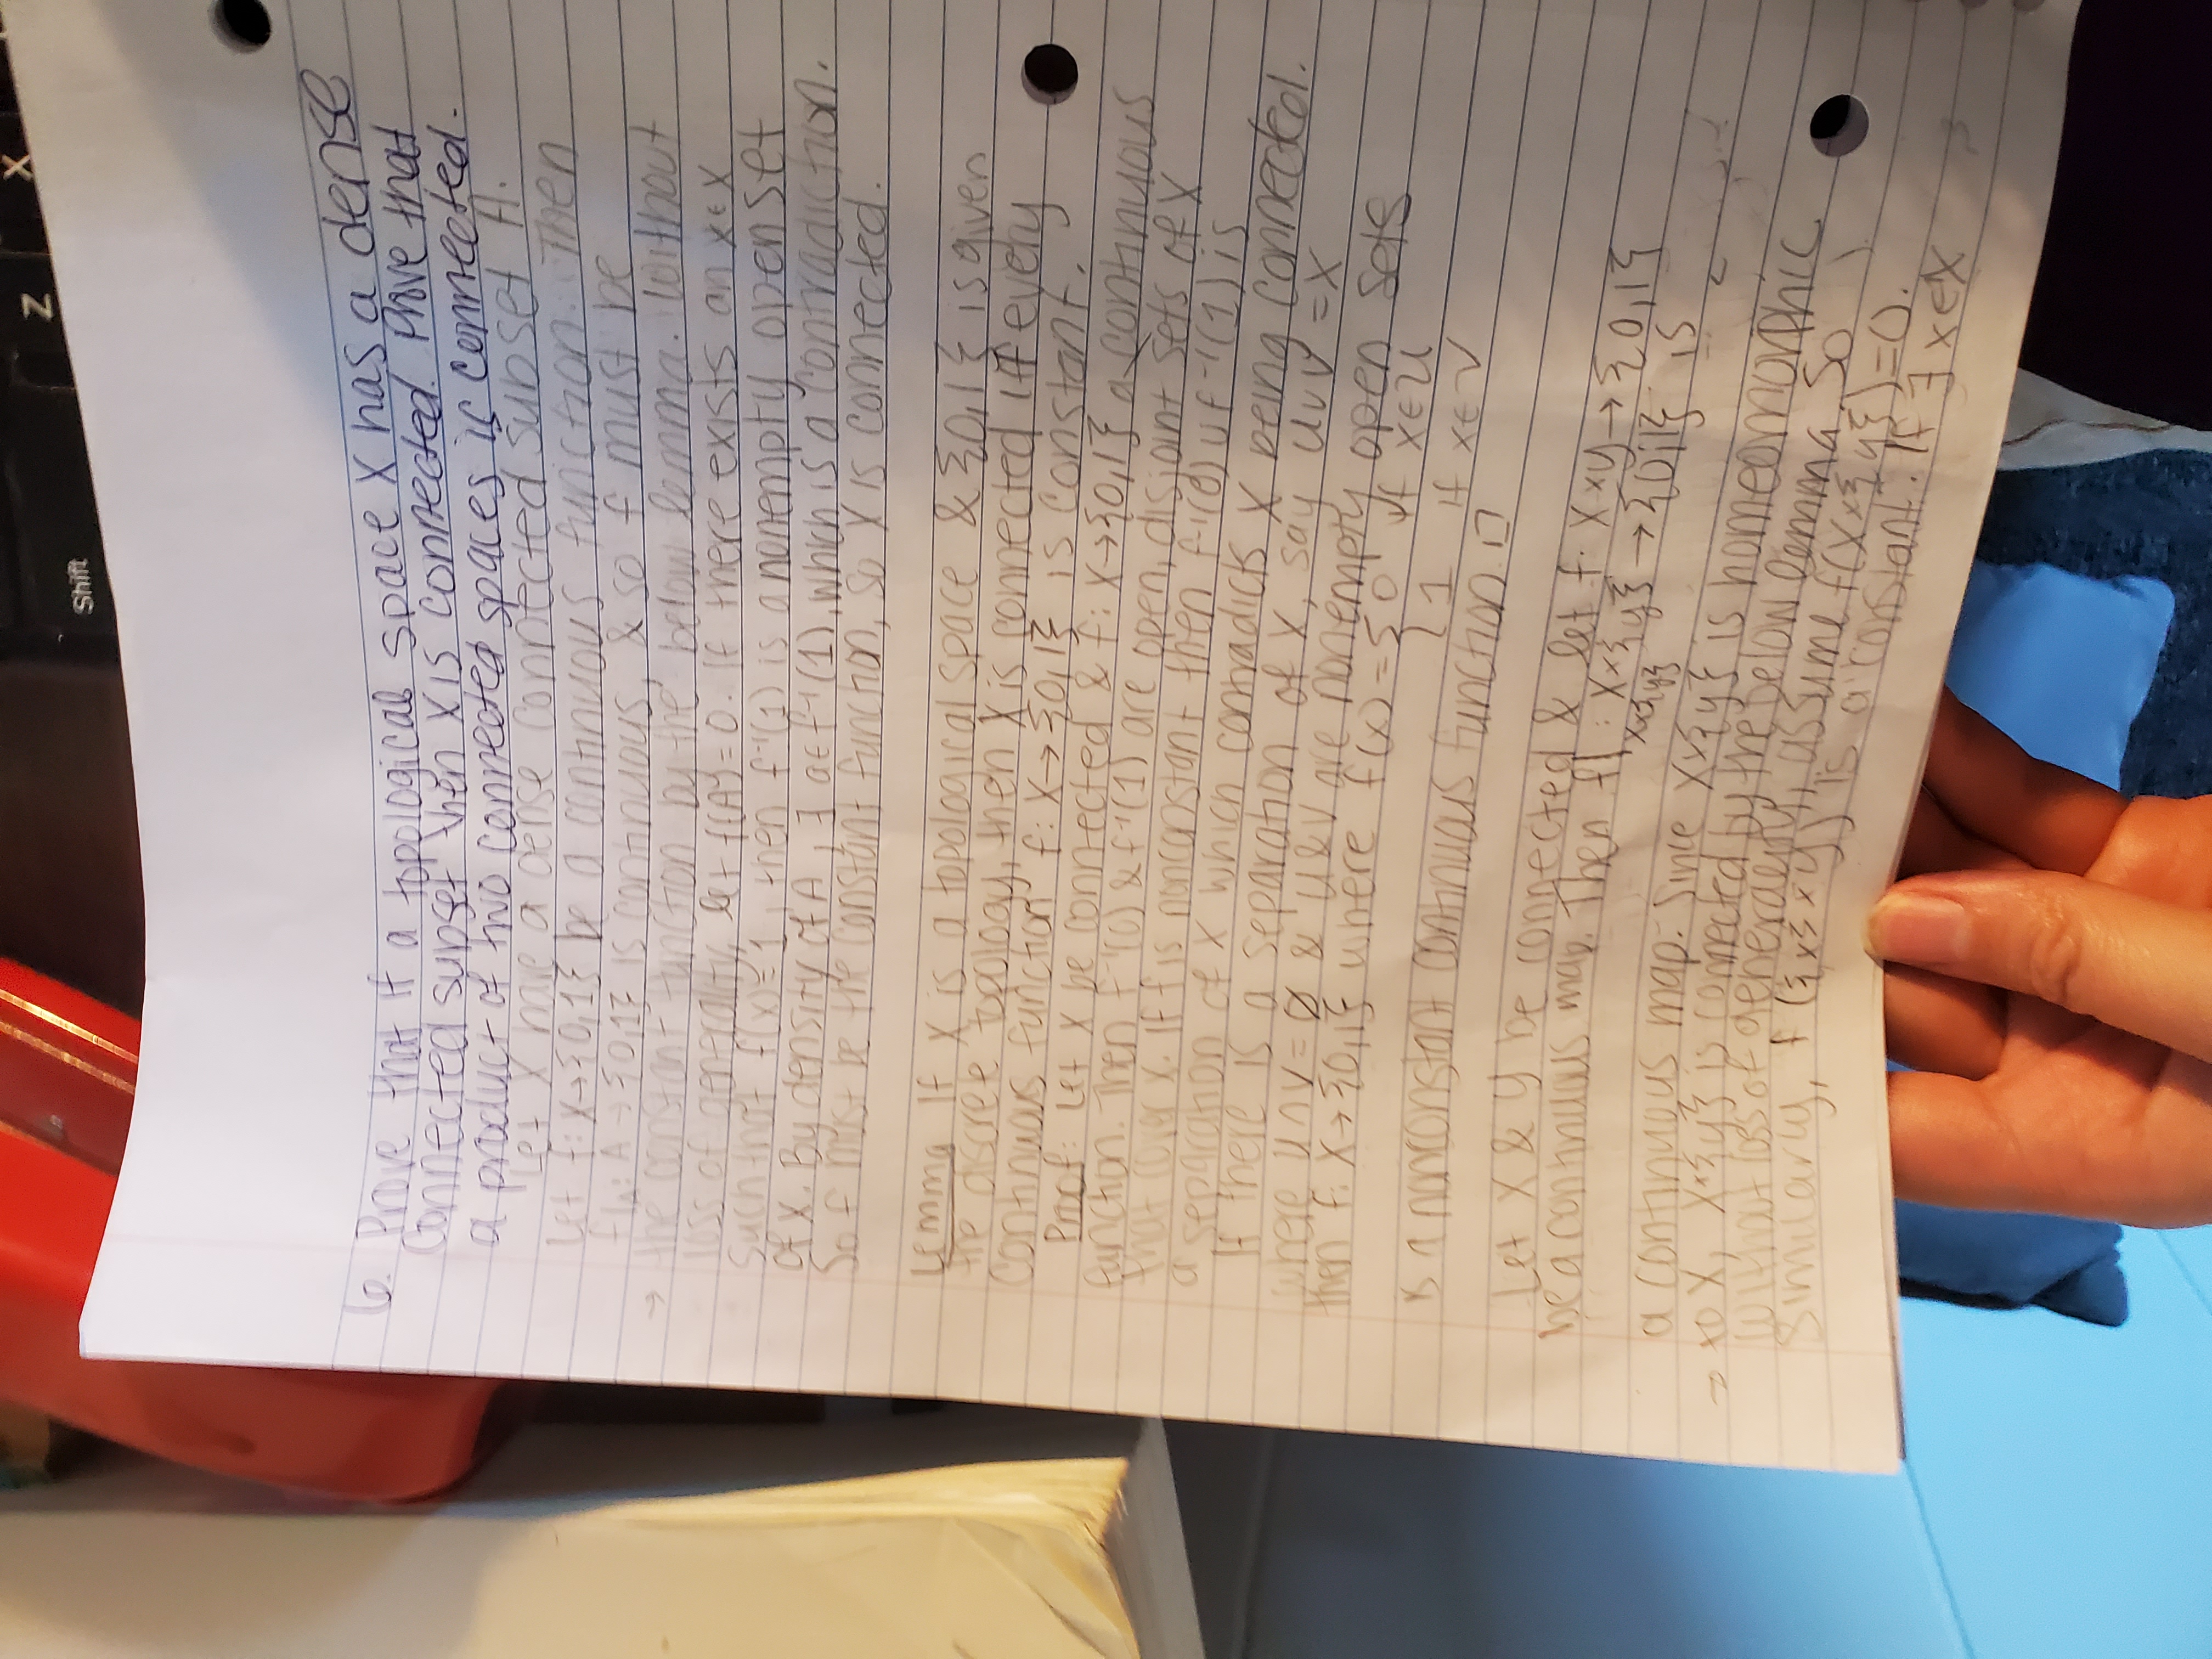 6. Prove that if a topological space X has a dense
connected subset then X is connected. Prove that
a product of two connected spaces is connected.
Let X have a dense connected subset A.
Let f: X→{0,1} be a continuous function. Then
f|A: A→{0,1} is continuous, & so f must be
→ the constant function by the below lemma. Without
loss of generality, let f(A)=0. If there exists an x∈X
such that f(x)=1, then f⁻¹(1) is a nonempty open set
of X. By density of A, ∃ a∈f⁻¹(1), which is a contradiction.
So f must be the constant function, so X is connected.
Lemma If X is a topological space & {0,1} is given
the discrete topology, then X is connected iff every
continuous function f: X→{0,1} is constant.
Proof: Let X be connected & f: X→{0,1} a continuous
function. Then f⁻¹(0) & f⁻¹(1) are open, disjoint sets of X
that cover X. If f is nonconstant then f⁻¹(0)∪f⁻¹(1) is
a separation of X which contradicts X being connected.
If there is a separation of X, say U∪V=X
where U∩V=∅ & U&V are nonempty open sets
then f: X→{0,1} where f(x)={0 if x∈U
1 if x∈V
is a nonconstant continuous function. □
Let X & Y be connected & let f: X×Y→{0,1}
be a continuous map. Then f|X×{y}: X×{y}→{0,1} is
a continuous map. Since X×{y} is homeomorphic
→ to X, X×{y} is connected by the below lemma so
Without loss of generality, assume f(X×{y})=0.
Similarly, f({x}×Y) is a constant. If ∃ x∈X